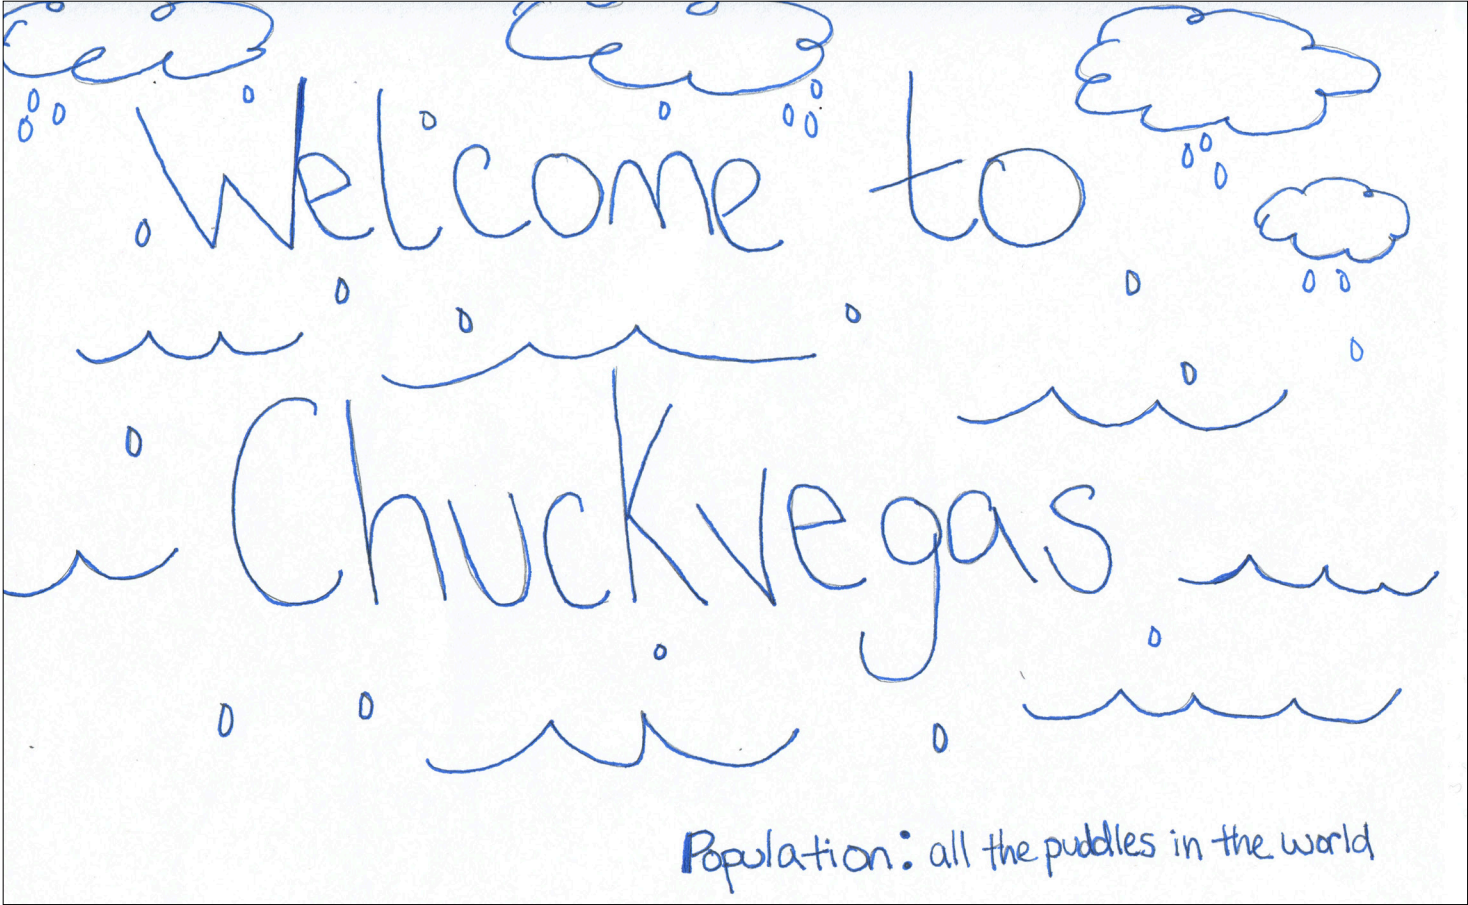 Welcome to
Chuckvegas
Population: all the puddles in the world